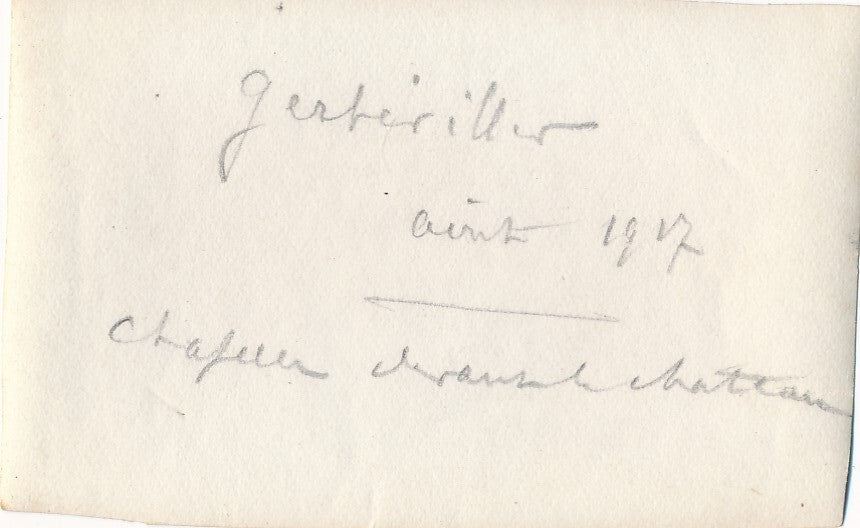 Gerbéviller
août 1917
Chapelle devant le chateau